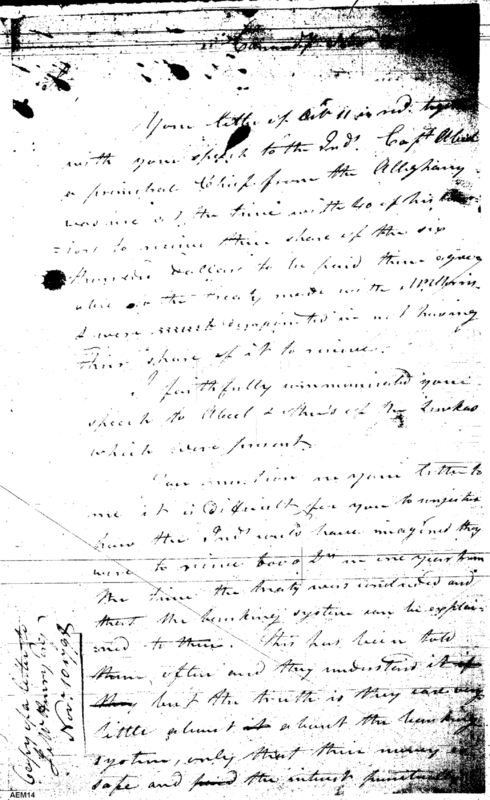 Your letter of Octr 11 is recd. together
with your speech to the Inds. Capt. Abeel
a principal Chief from the Alleghany
was me at the time with 40 of his
-ions to receive their share of the six
thousand dollars to be paid them agree
able to the treaty made with Mr Morris
& were disappointed in not having
their share of it to receive.
I faithfully communicated your
speech to Abeel & others of the Senekas
which were present.
You mention in your letter to
me it is difficult for you to conjecture
how the Inds could have imagined they
were to receive 6000 Drs in one year from
the time the treaty was concluded and
that the banking system can be explai-
ned to them. This has been told
them often and they understand it if
they but the truth is they care very
little about it about the banking
system, only that their money is
safe and paid the interest punctually
Copy of a letter to
Jas McHenry Esqr
Nov. 10 1798
AEM14